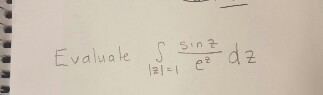 Evaluate ∫_{|z|=1} \frac{sin z}{e^z} dz